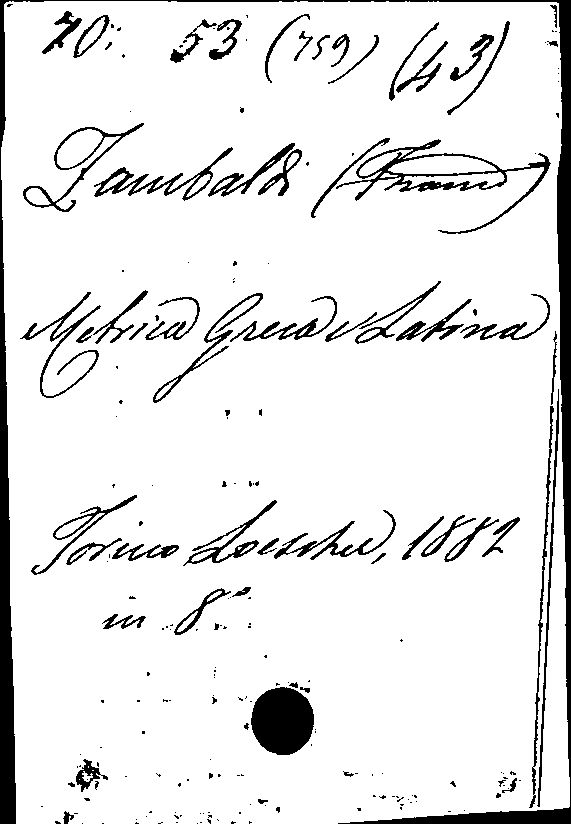 70. 53 (759) (43)
Zambaldi (Franc)
Metrica Greca e Latina
Torino Loescher, 1882
in 8°